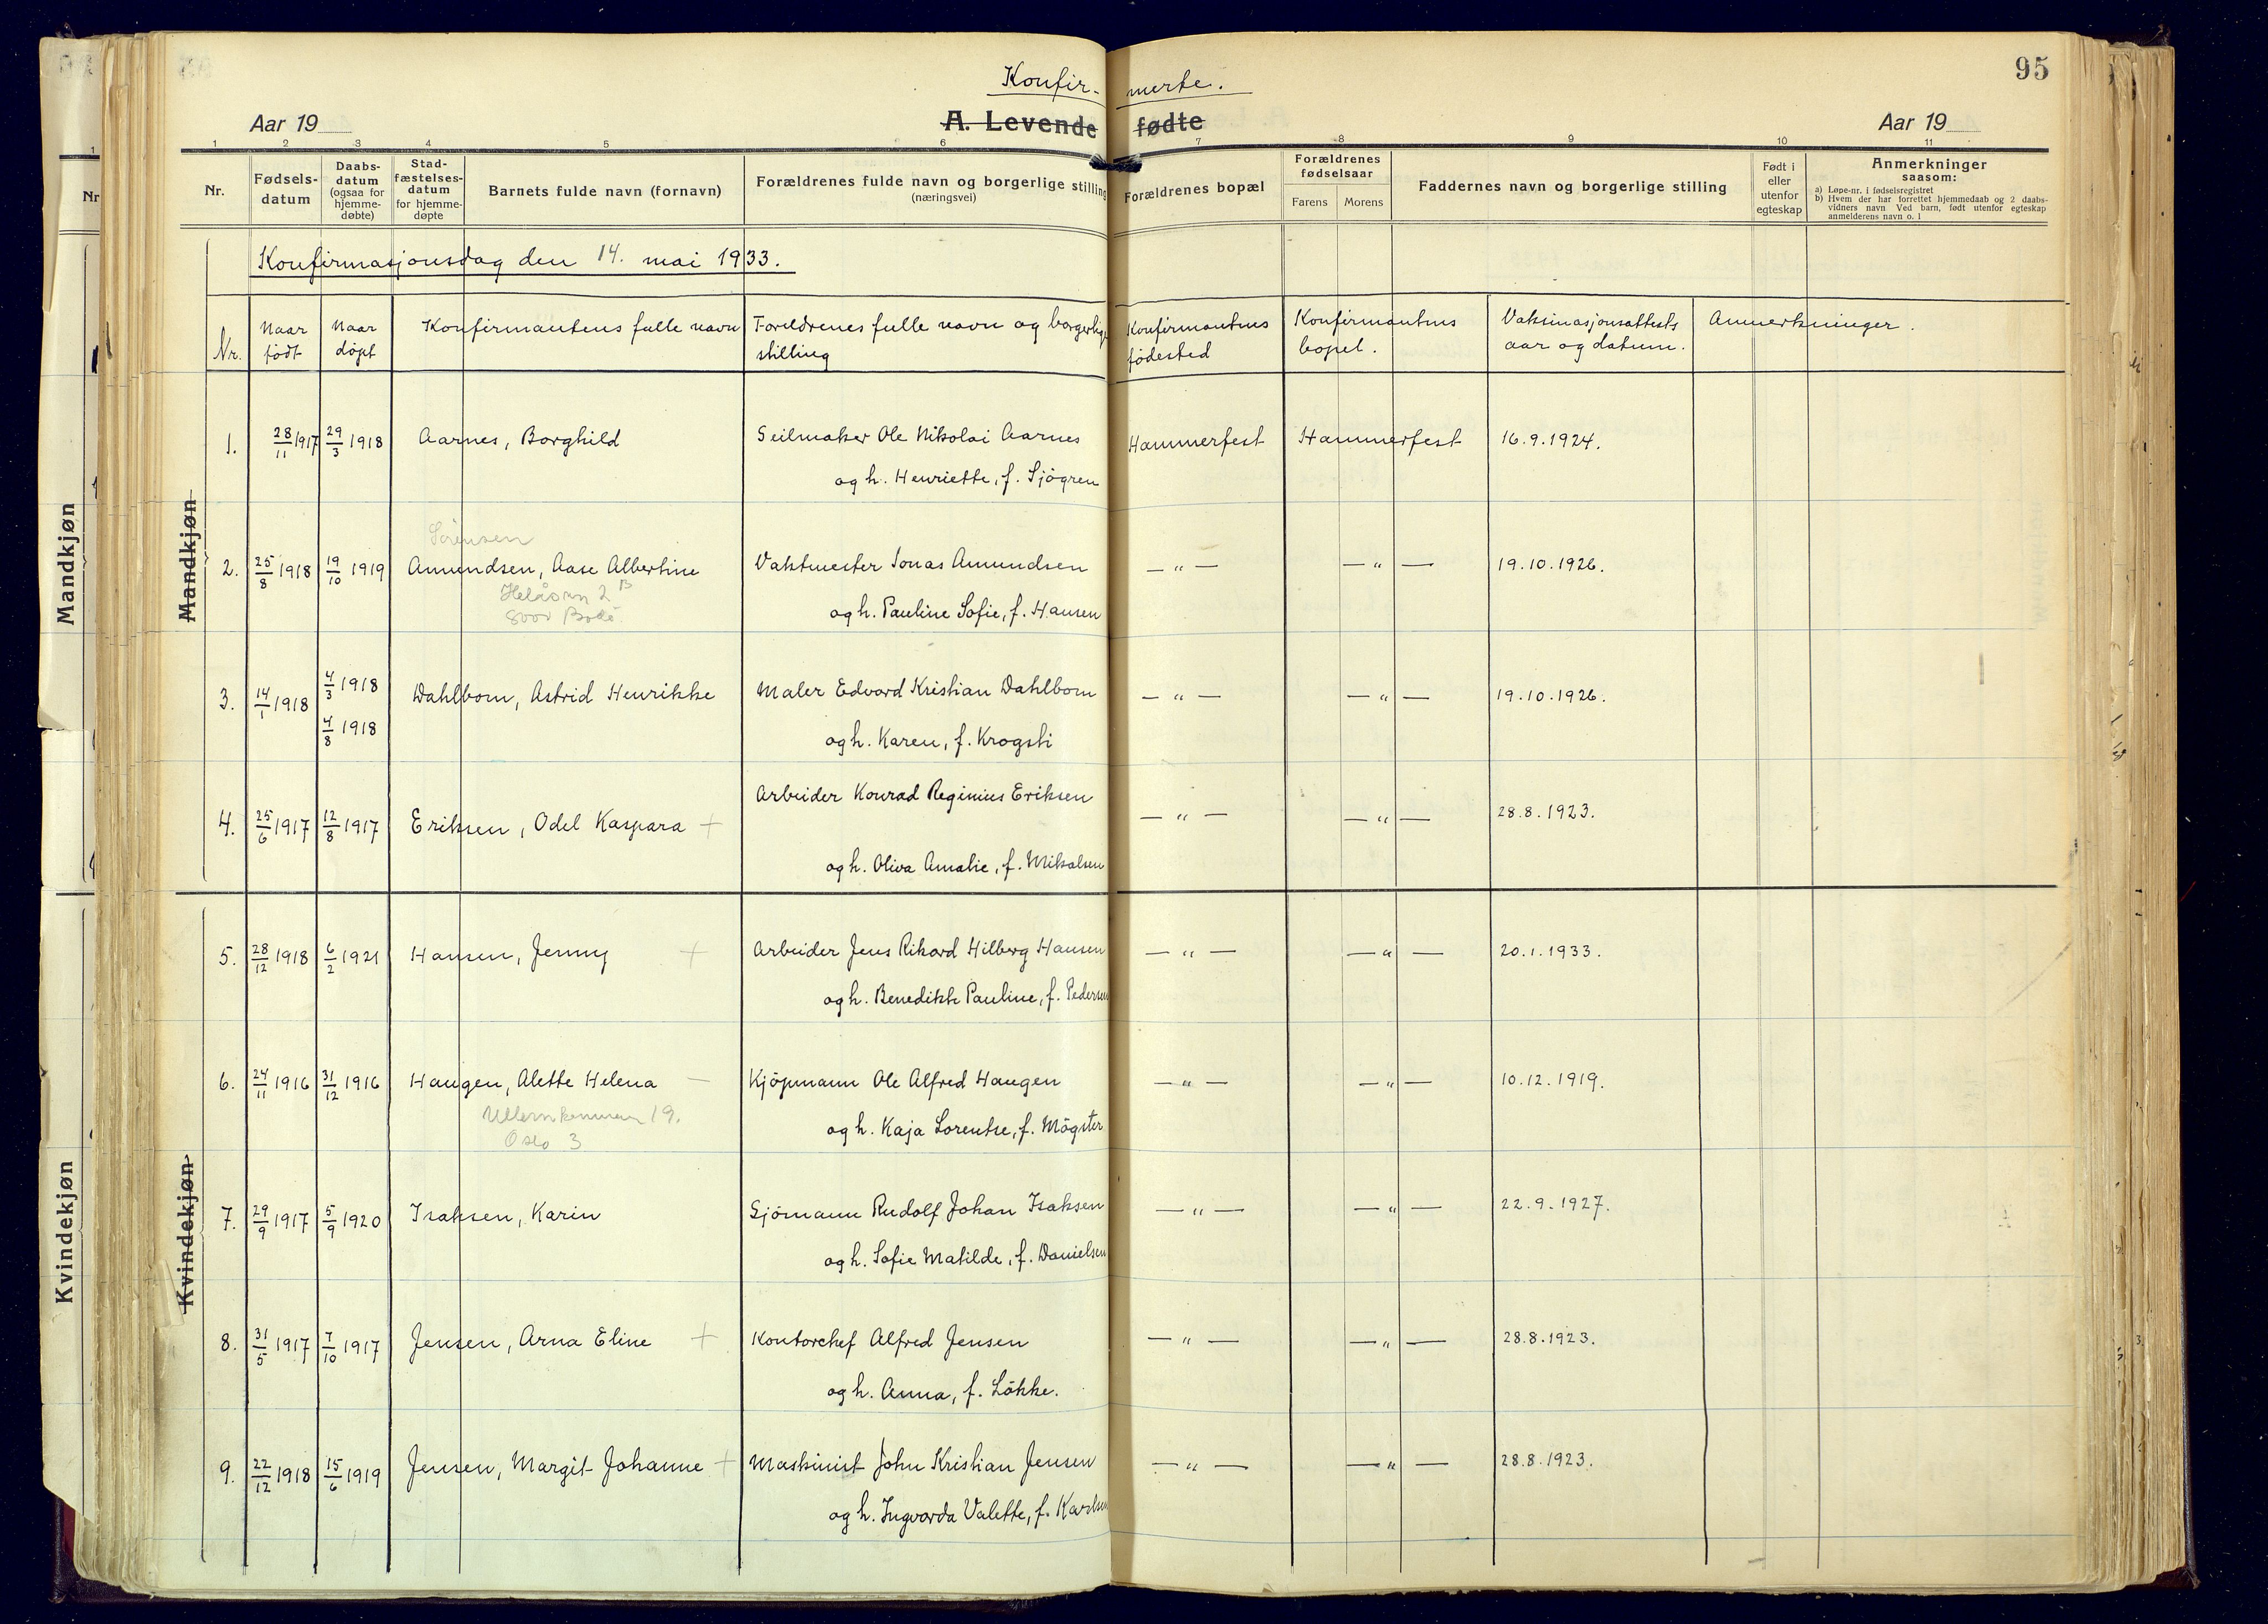 95
Konfir- merte.
Aar 19 A. Levende fødte Aar 19
1 2 3 4 5 6 7 8 9 10 11
Nr. Fødselsdatum Daabsdatum (ogsaa for hjemmedøbte) Stadfæstelsesdatum for hjemmedøpte Barnets fulde navn (fornavn) Forældrenes fulde navn og borgerlige stilling (næringsvei) Forældrenes bopæl Forældrenes fødselsaar Farens Morens Faddernes navn og borgerlige stilling Født i eller utenfor egteskap Anmerkninger saasom:
a) Løpe-nr. i fødselsregistret
b) Hvem der har forrettet hjemmedaab og 2 daabsvidners navn Ved barn, født utenfor egteskap anmelderens navn o. l
Konfirmasjonsdag den 14. mai 1933.
Nr. Naar født Naar döpt Konfirmantens fulle navn Foreldrenes fulle navn og borgerlige stilling Konfirmantens födested Konfirmantens bopel. Vaksinasjonsattests aar og datum. Anmerkninger.
Mandkjøn
Mandkjøn
1. 28/11 1917 29/3 1918 Aarnes, Borghild Seilmaker Ole Nikolai Aarnes Hammerfest Hammerfest 16.9.1924.
og h. Henriette, f. Sjögren
Sörensen
2. 25/8 1918 19/10 1919 Amundsen, Aase Albertine Vaktmester Jonas Amundsen — " — — " — 19.10.1926.
2 B og h. Pauline Sofie, f. Hansen
8000 Bodö
3. 14/1 1918 4/3 1918 Dahlbom, Astrid Henrikke Maler Edvard Kristian Dahlbom — " — — " — 19.10.1926.
4/8 1918 og h. Karen, f. Krogsti
4. 25/6 1917 12/8 1917 Eriksen, Odel Kaspara + Arbeider Konrad Reginius Eriksen — " — — " — 28.8.1923.
og h. Oliva Amalie, f. Mikalsen
Kvindekjøn
Kvindekjøn
5. 28/12 1918 6/2 1921 Hansen, Jenny + Arbeider Jens Rikard Hilberg Hansen — " — — " — 20.1.1933.
og h. Benedikte Pauline, f. Pedersen
6. 24/11 1916 31/12 1916 Haugen, Alette Helena — Kjöpmann Ole Alfred Haugen — " — — " — 10.12.1919.
19. og h. Kaja Lorentse, f. Mögster
Oslo 3
7. 29/9 1917 5/9 1920 Isaksen, Karin Sjömann Rudolf Johan Isaksen — " — — " — 22.9.1927.
og h. Sofie Matilde, f. Danielsen
8. 31/5 1917 7/10 1917 Jensen, Arna Eline + Kontorchef Alfred Jensen — " — — " — 28.8.1923.
og h. Anna, f. Lökke.
9. 22/12 1918 15/6 1919 Jensen, Margit Johanne + Maskinist John Kristian Jensen — " — — " — 28.8.1923.
og h. Ingvarda Valette, f. Karlsen